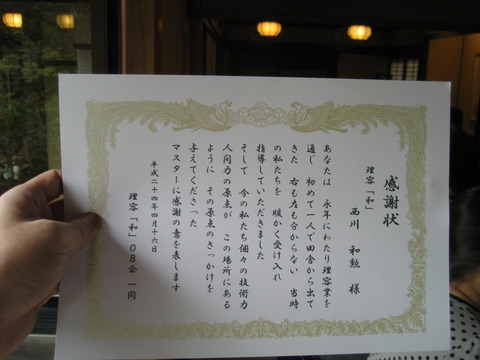 感謝状
理容「和」
西川 和勲 様
あなたは 永年にわたり理容業を
通じ 初めて一人で田舎から出て
きた 右も左も分からない 当時
の私たちを 暖かく受け入れ
指導していただきました
そして 今の私たち個々の技術力
人間力の原点が この場所にある
ように その原点のきっかけを
与えてくださった
マスターに感謝の意を表します
平成二十四年四月十六日
理容「和」OB会 一同